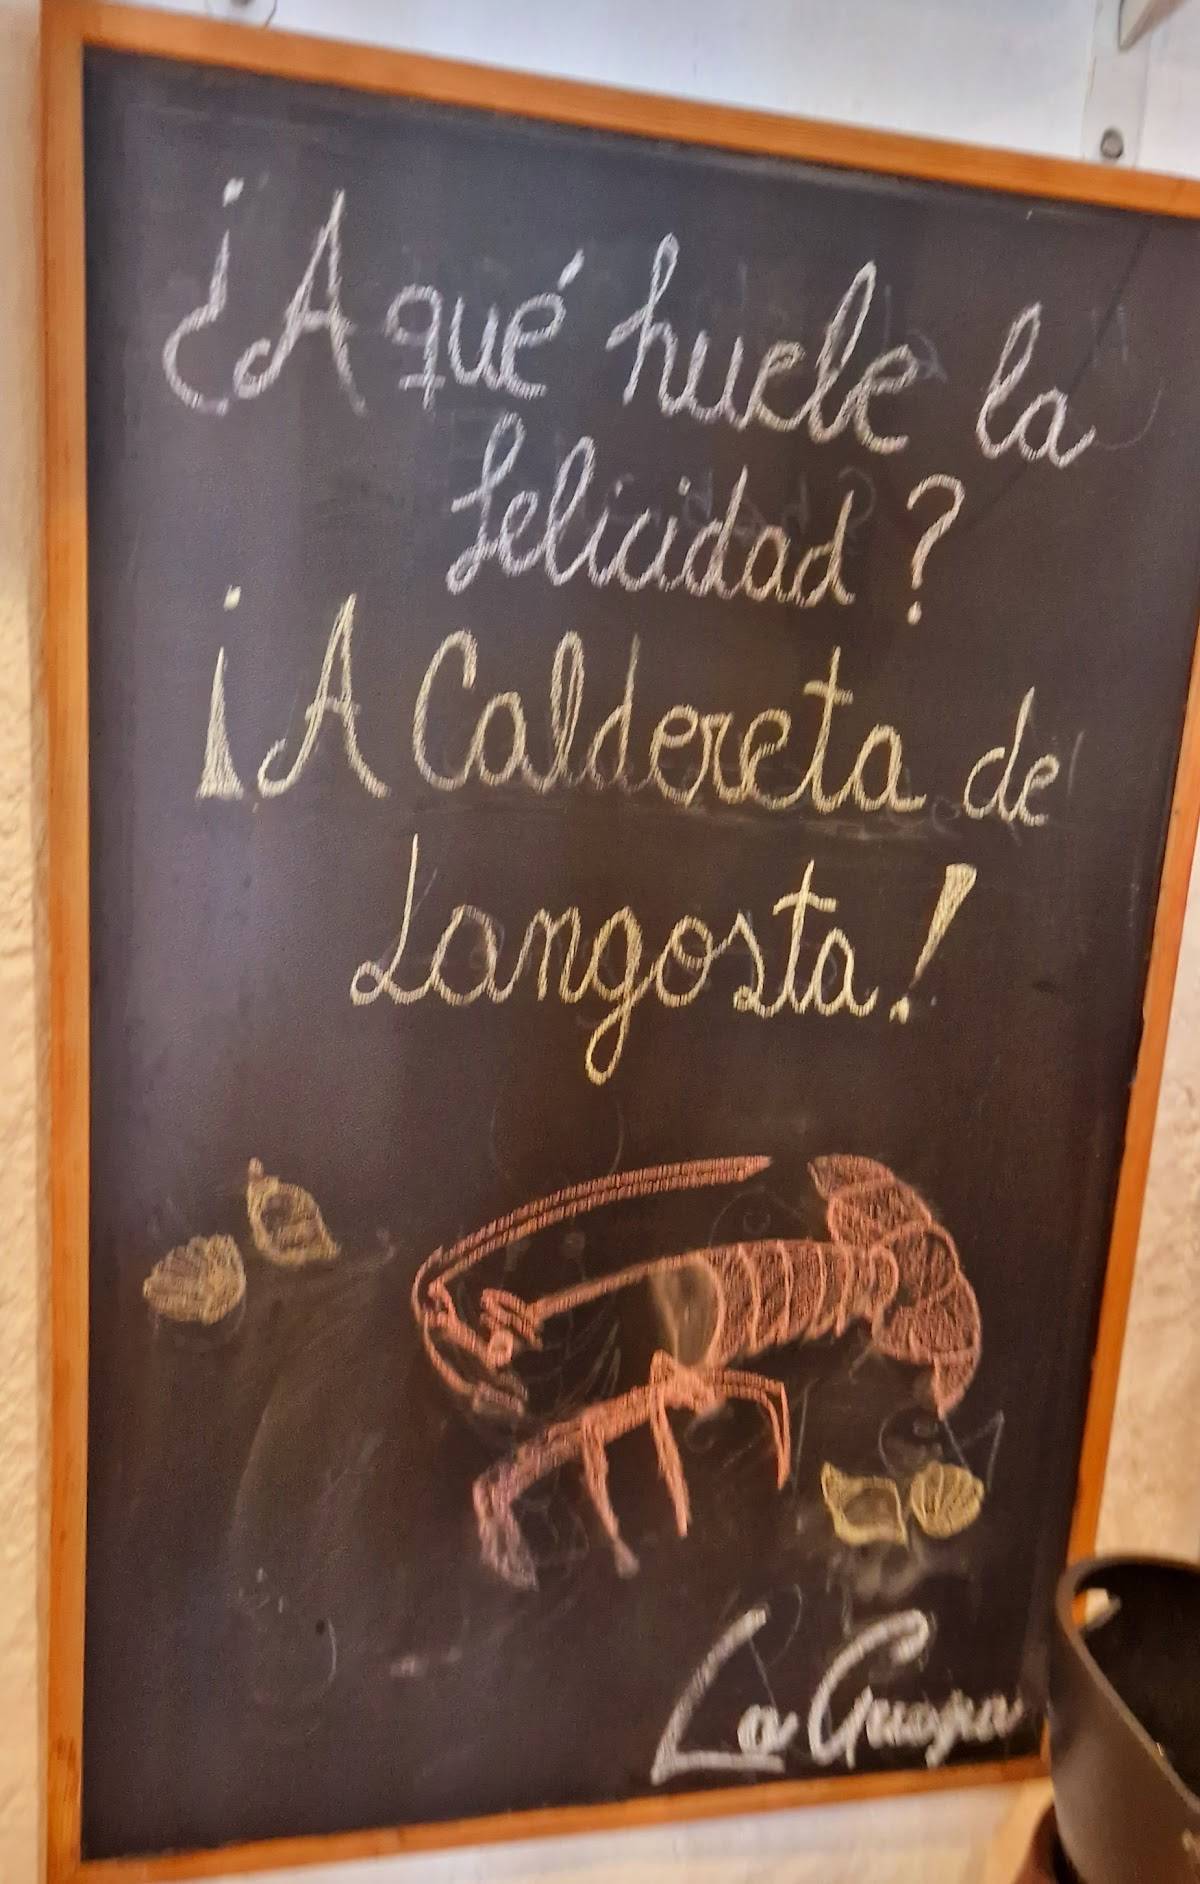 ¿A qué huele la
felicidad?
¡A Caldereta de
Langosta!
La Guapa